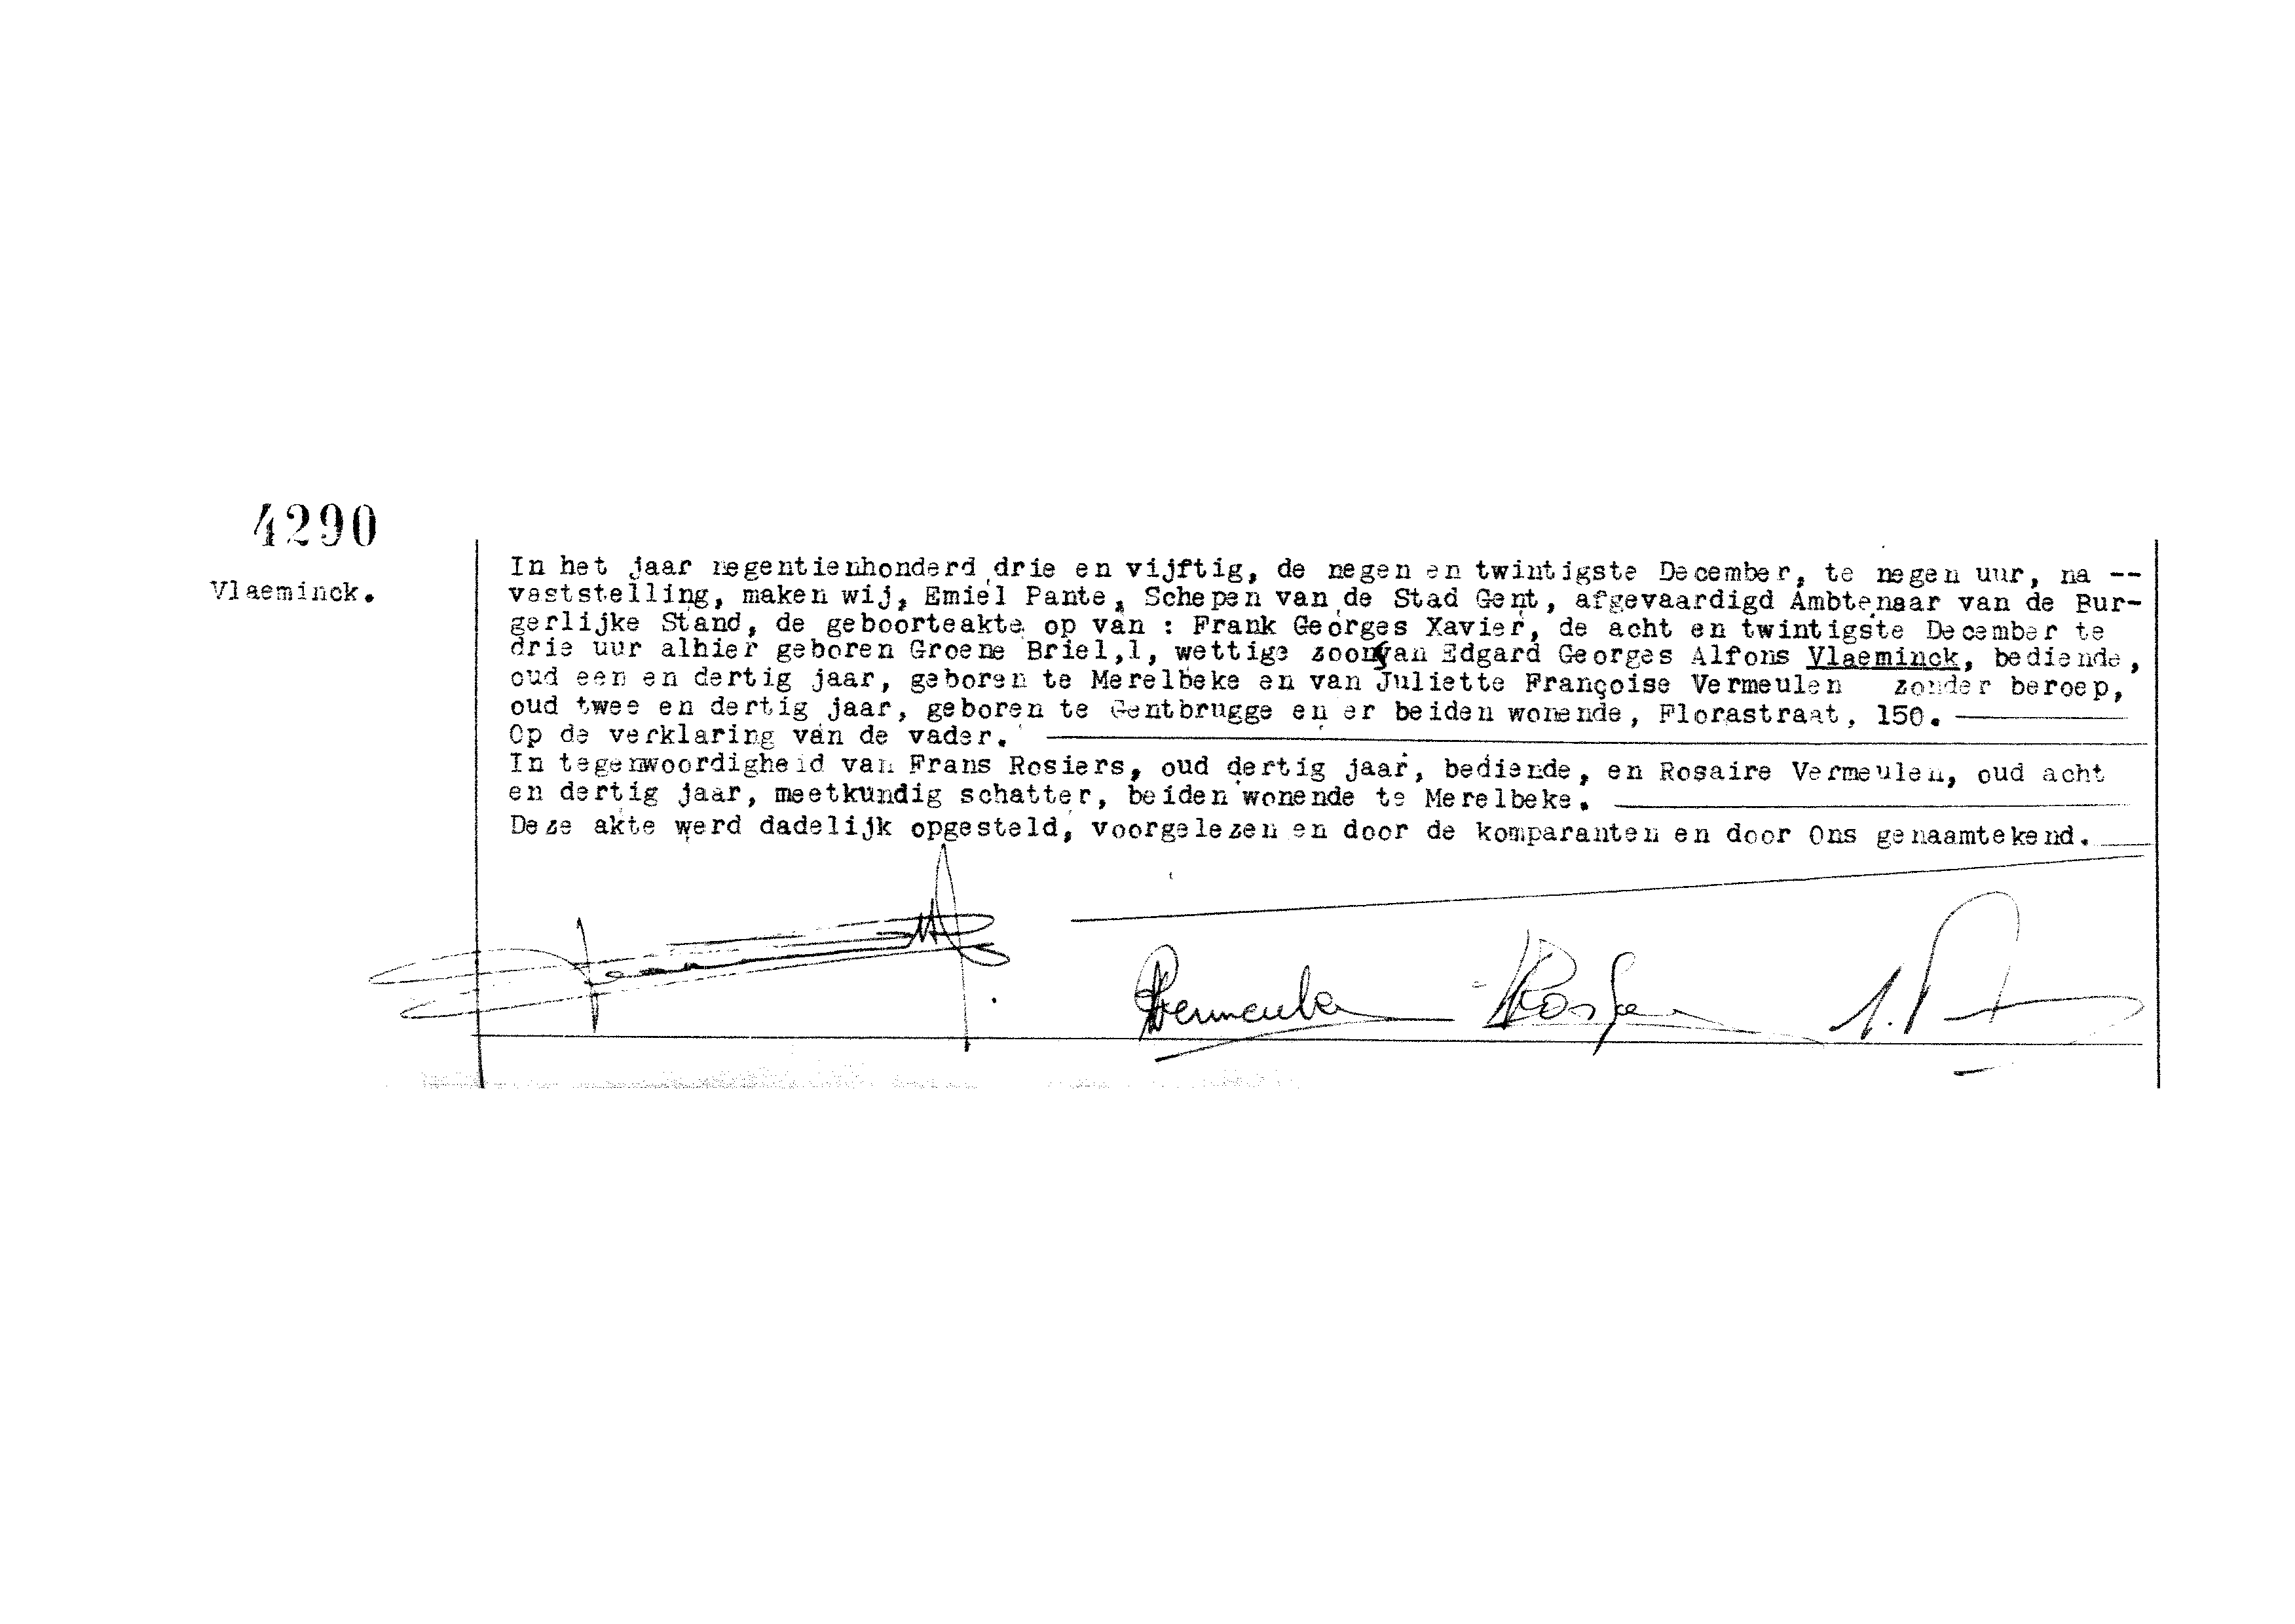 4290
Vlaeminck.
In het jaar negentienhonderd drie en vijftig, de negen en twintigste December, te negen uur, na --
vaststelling, maken wij, Emiel Pante, Schepen van de Stad Gent, afgevaardigd Ambtenaar van de Bur-
gerlijke Stand, de geboorteakte op van : Frank Georges Xavier, de acht en twintigste December te
drie uur alhier geboren Groene Briel,1, wettige zoon van Edgard Georges Alfons Vlaeminck, bediende,
oud een en dertig jaar, geboren te Merelbeke en van Juliette Françoise Vermeulen zonder beroep,
oud twee en dertig jaar, geboren te Gentbrugge en er beiden wonende, Florastraat, 150.
Op de verklaring van de vader.
In tegenwoordigheid van Frans Rosiers, oud dertig jaar, bediende, en Rosaire Vermeulen, oud acht
en dertig jaar, meetkundig schatter, beiden wonende te Merelbeke.
Deze akte werd dadelijk opgesteld, voorgelezen en door de komparanten en door Ons genaamtekend.
Vermeulen